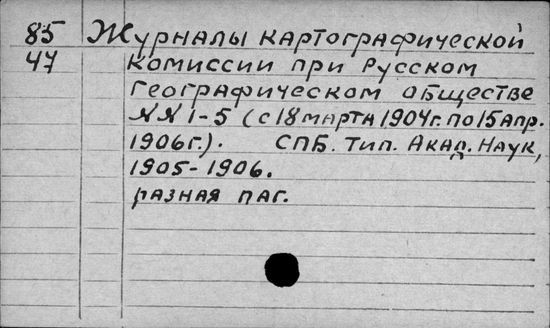 85 Журналы картографической
47 комиссии при Русском
Географическом обществе
NN 1-5 (с 18 марта 1904г. по 15 апр.
1906г.). СПБ. Тип. Акад. Наук,
1905-1906.
разная паг.